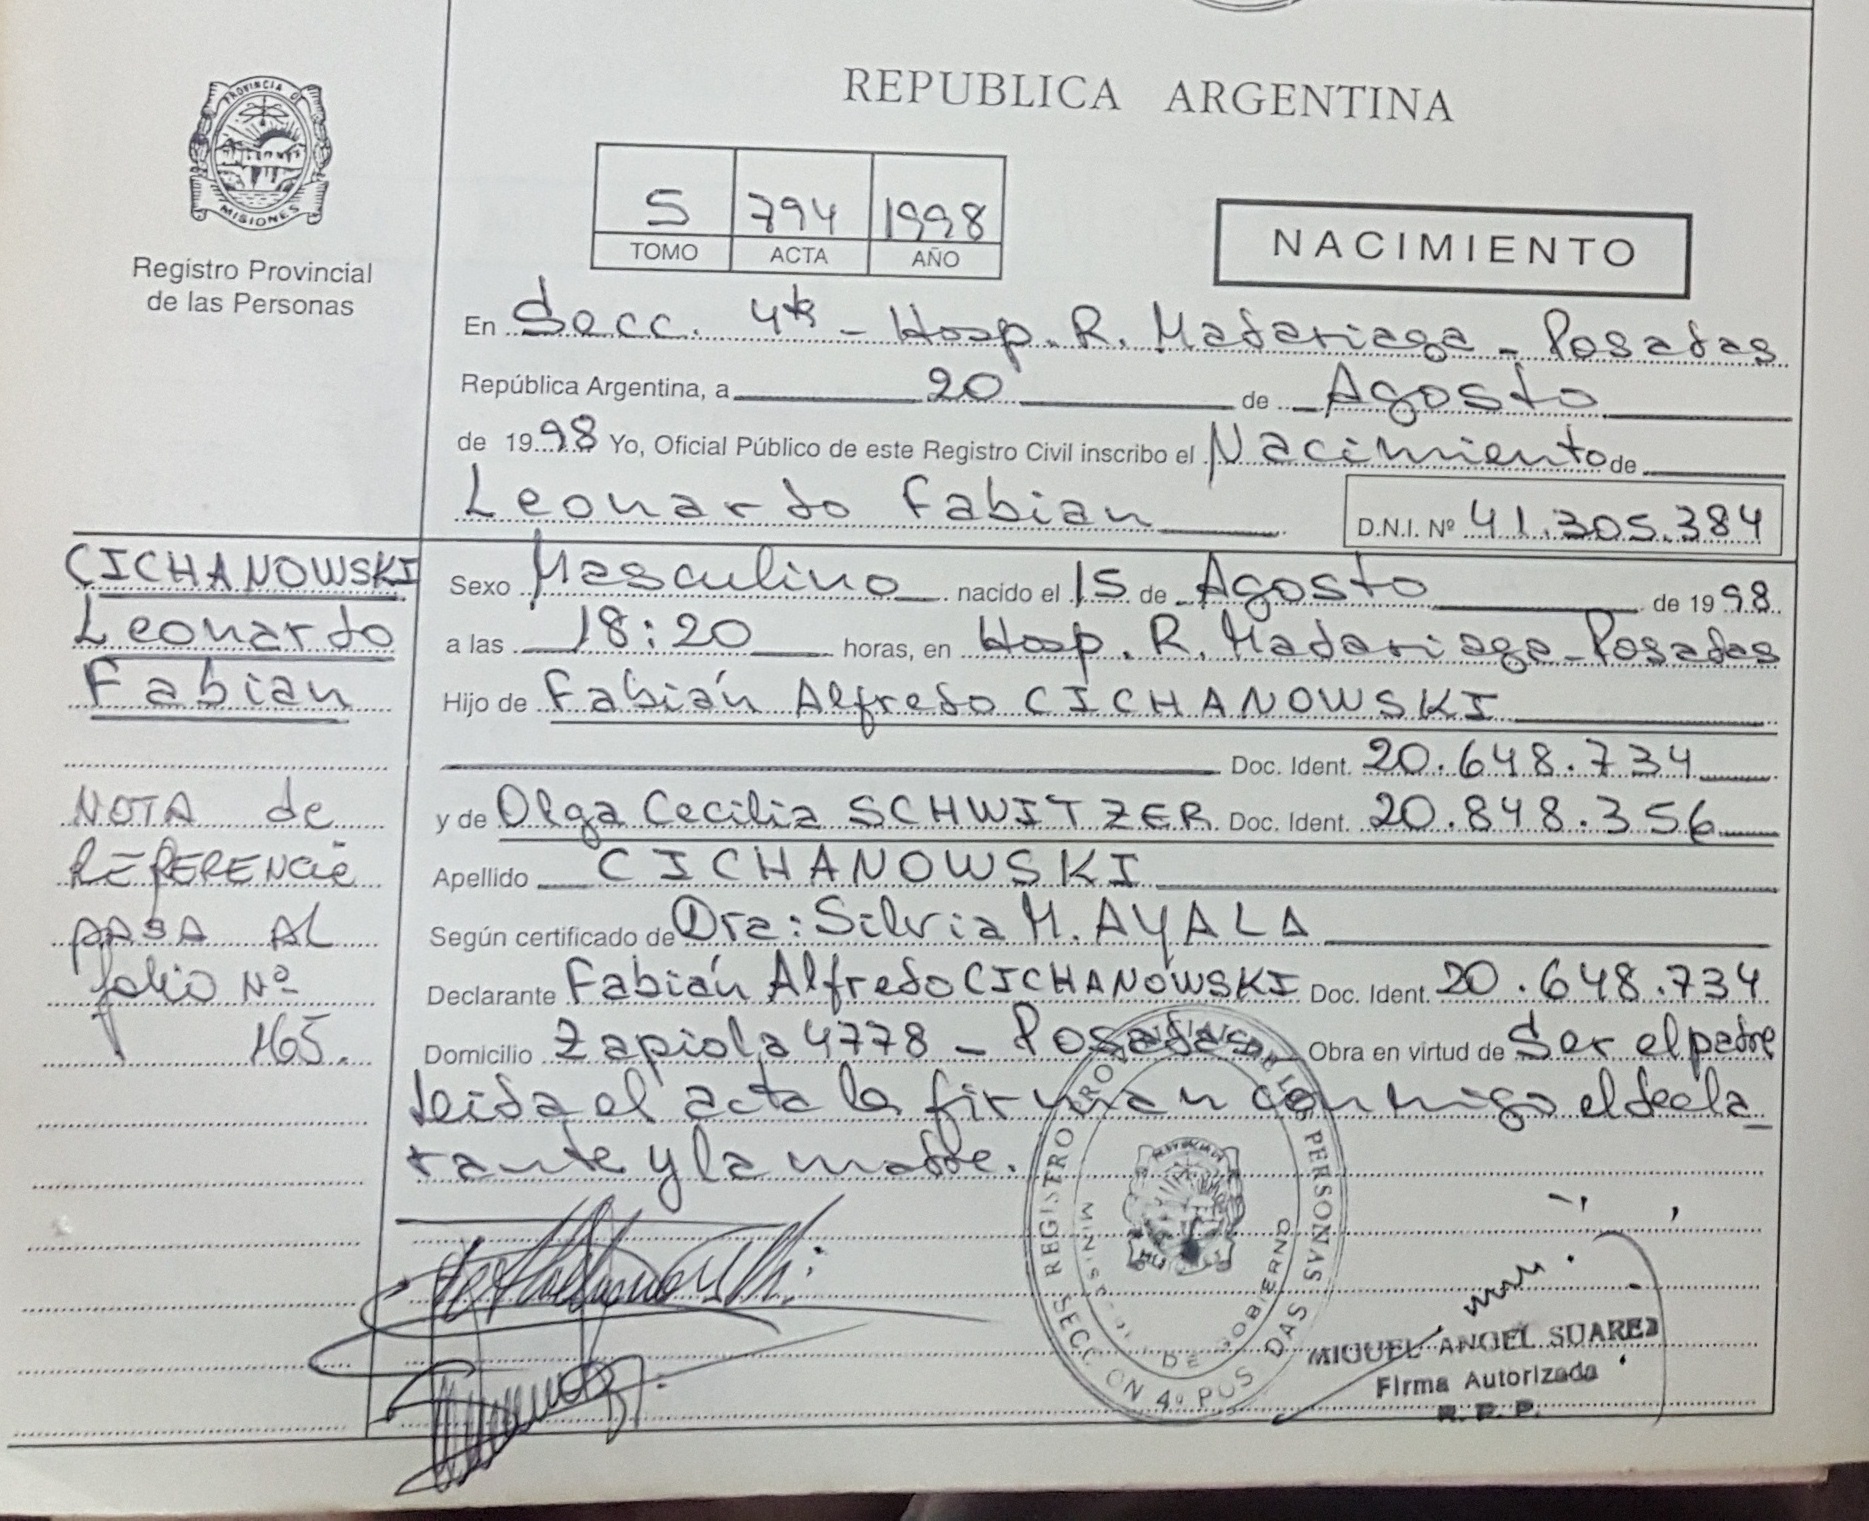 REPUBLICA ARGENTINA
PROVINCIA DE
MISIONES
Registro Provincial
de las Personas
5 794 1998
TOMO ACTA AÑO
NACIMIENTO
En Secc. 4ta - Hosp. R. Madariaga - Posadas
República Argentina, a 20 de Agosto
de 1998 Yo, Oficial Público de este Registro Civil inscribo el Nacimiento de
Leonardo Fabian D.N.I. Nº 41.305.384
CICHANOWSKI
Leonardo
Fabian
Sexo Masculino nacido el 15 de Agosto de 1998
a las 18:20 horas, en Hosp. R. Madariaga - Posadas
Hijo de Fabián Alfredo CICHANOWSKI
Doc. Ident. 20.648.734
y de Olga Cecilia SCHWITZER Doc. Ident. 20.848.356
Apellido CICHANOWSKI
Según certificado de Dra: Silvia M. AYALA
Declarante Fabián Alfredo CICHANOWSKI Doc. Ident. 20.648.734
Domicilio Zapiola 4778 - Posadas Obra en virtud de Ser el padre
leida el acta la firman conmigo el decla_
rante y la madre.
NOTA de
REFERENCIA
PASA AL
folio Nº
165.
REGISTRO PROVINCIAL DE LAS PERSONAS
SECCION 4º POSADAS
MINISTERIO DE GOBIERNO
MIGUEL ANGEL SUAREZ
Firma Autorizada
R. P. P.